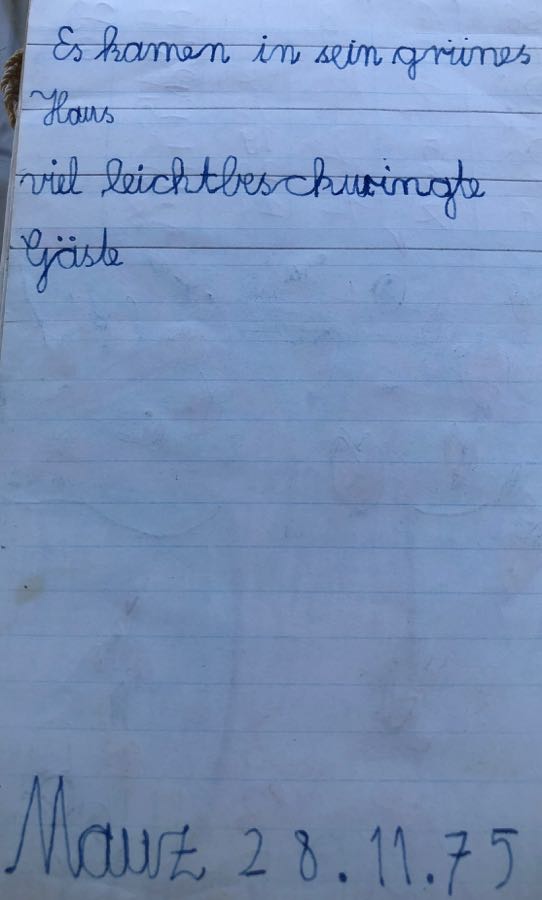 Es kamen in sein grünes
Haus
viel leichtbeschwingte
Gäste
Mauz 28.11.75